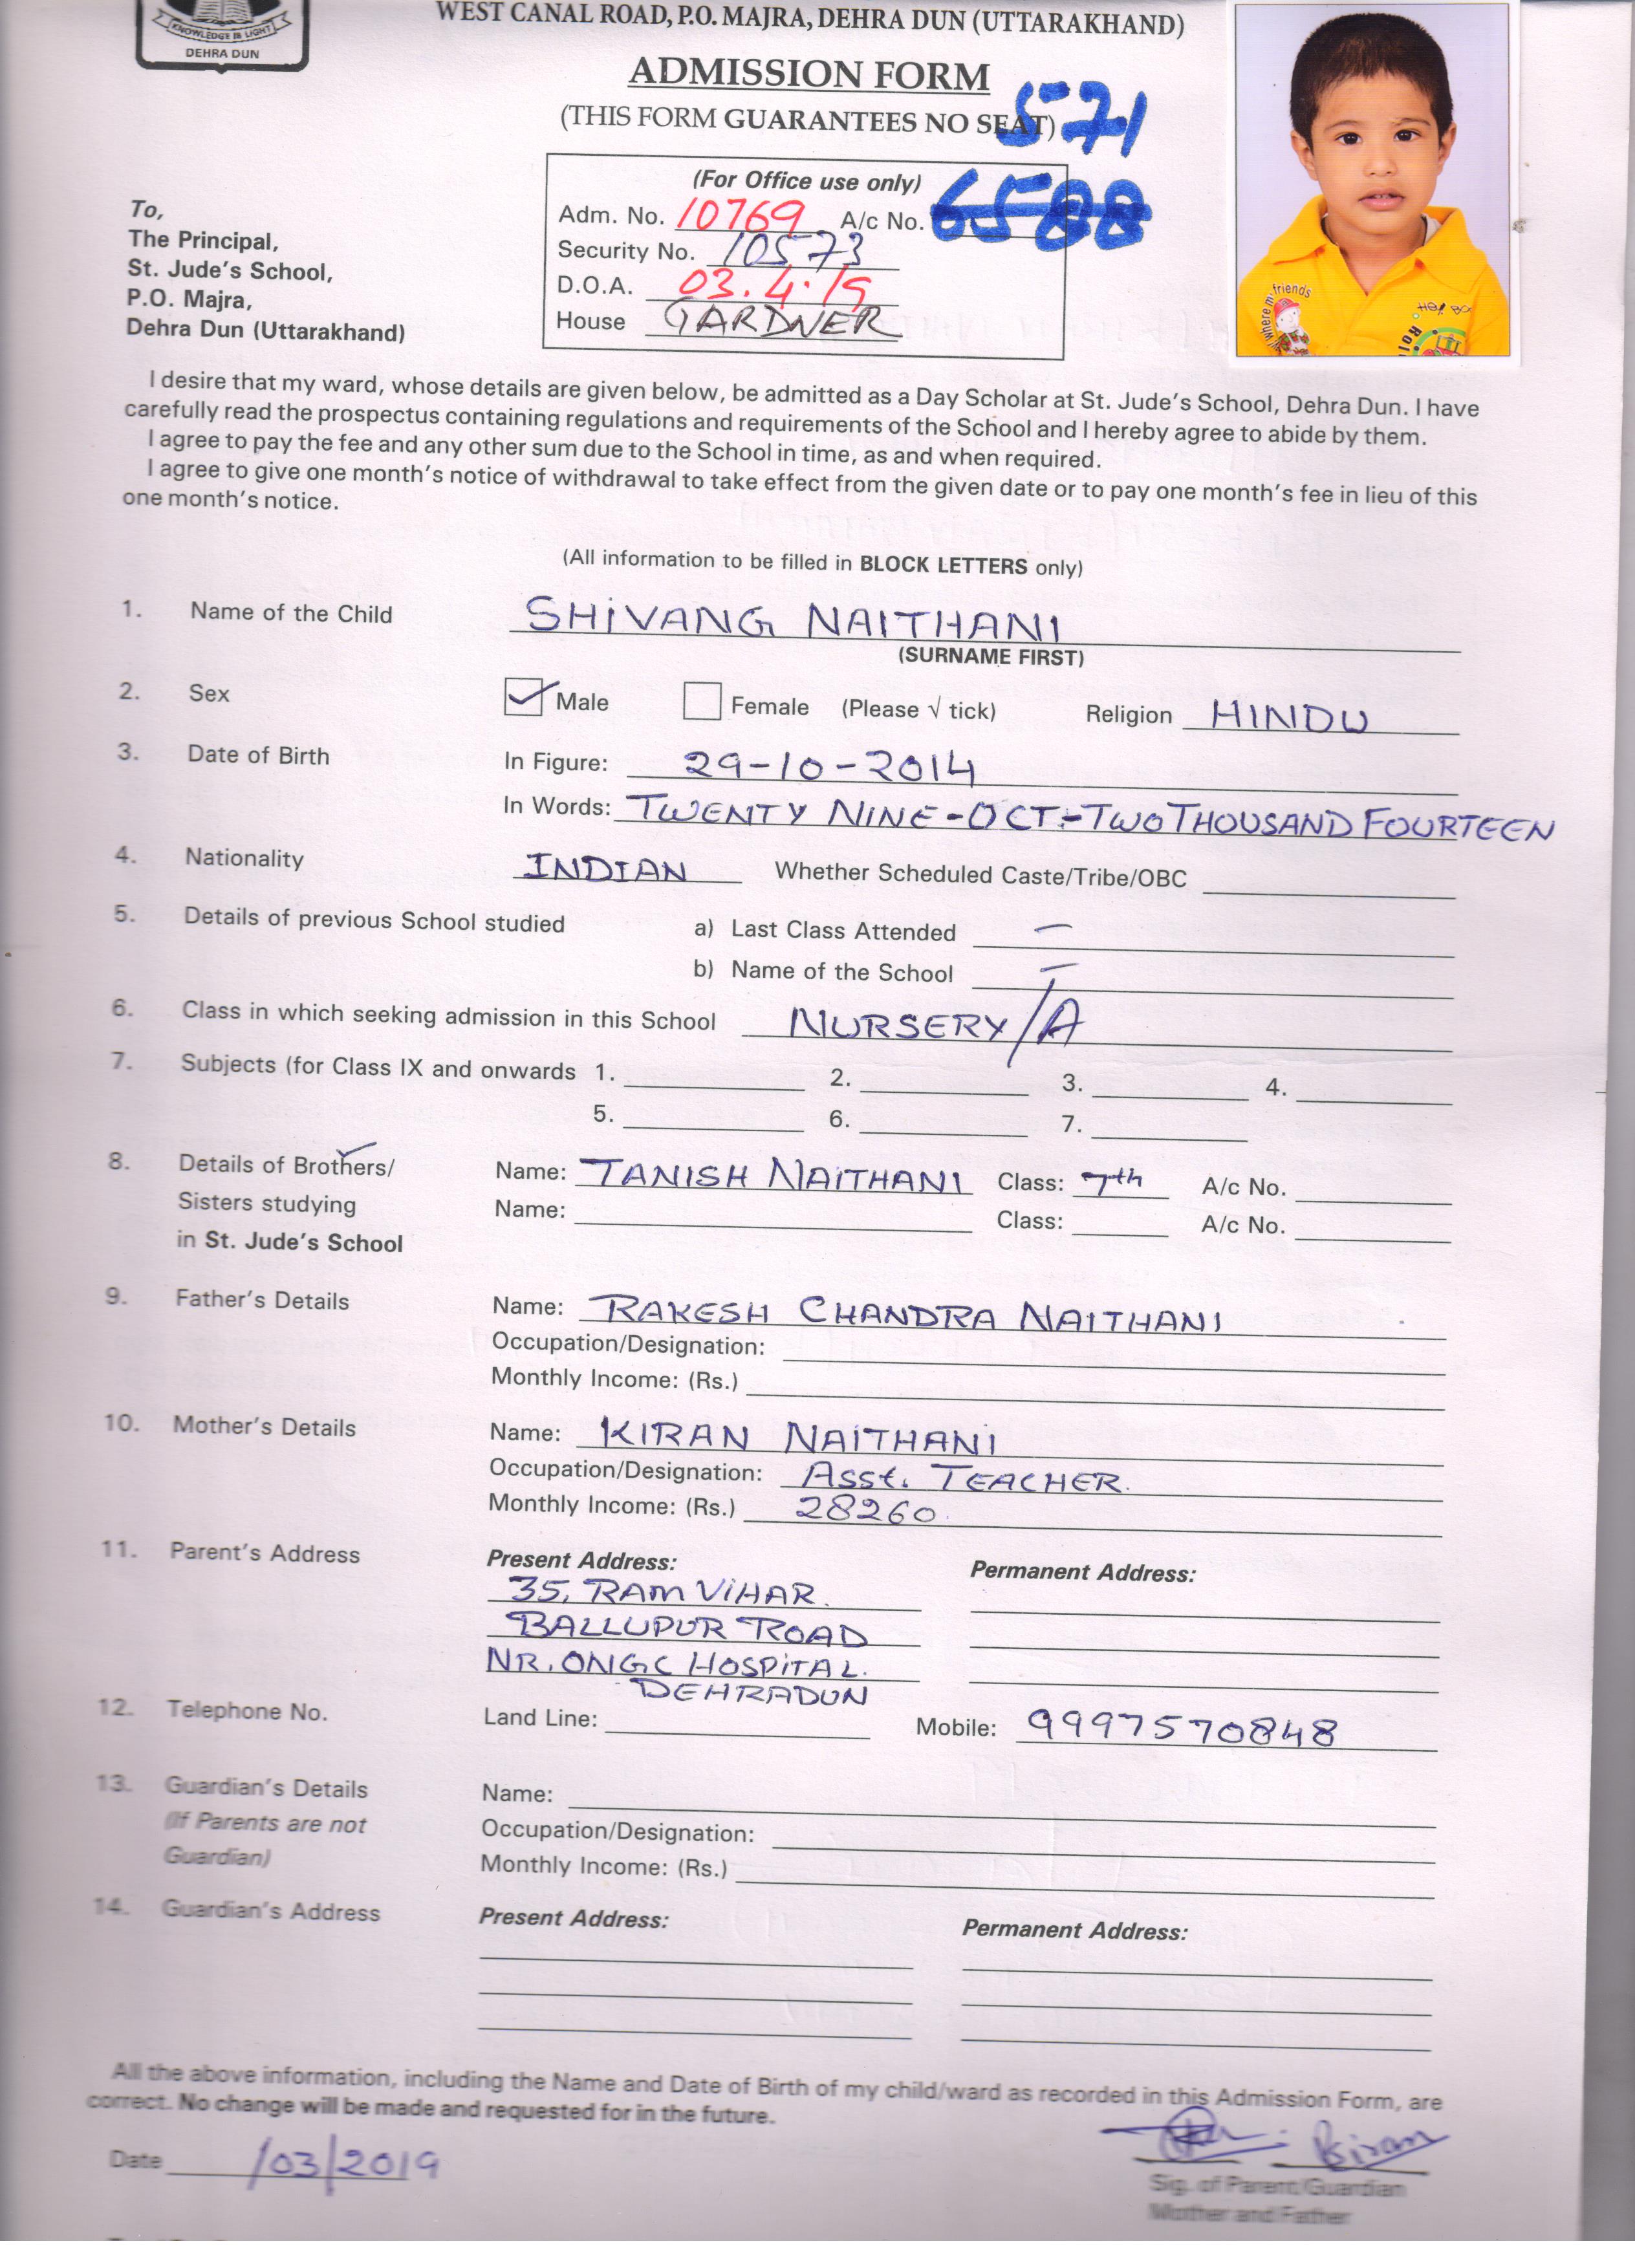 KNOWLEDGE IS LIGHT
DEHRA DUN
WEST CANAL ROAD, P.O. MAJRA, DEHRA DUN (UTTARAKHAND)
ADMISSION FORM
(THIS FORM GUARANTEES NO SEAT)
571
(For Office use only)
Adm. No. 10769 A/c No. 6588
Security No. 10573
D.O.A. 03.4.19
House GARDNER
To,
The Principal,
St. Jude's School,
P.O. Majra,
Dehra Dun (Uttarakhand)
friends
I desire that my ward, whose details are given below, be admitted as a Day Scholar at St. Jude's School, Dehra Dun. I have
carefully read the prospectus containing regulations and requirements of the School and I hereby agree to abide by them.
I agree to pay the fee and any other sum due to the School in time, as and when required.
I agree to give one month's notice of withdrawal to take effect from the given date or to pay one month's fee in lieu of this
one month's notice.
(All information to be filled in BLOCK LETTERS only)
1. Name of the Child SHIVANG NAITHANI
(SURNAME FIRST)
2. Sex Male Female (Please √ tick) Religion HINDU
3. Date of Birth In Figure: 29-10-2014
In Words: TWENTY NINE-OCT-TWO THOUSAND FOURTEEN
4. Nationality INDIAN Whether Scheduled Caste/Tribe/OBC
5. Details of previous School studied a) Last Class Attended —
b) Name of the School —
6. Class in which seeking admission in this School NURSERY/A
7. Subjects (for Class IX and onwards 1. 2. 3. 4.
5. 6. 7.
8. Details of Brothers/ Name: TANISH NAITHANI Class: 7th A/c No.
Sisters studying Name: Class: A/c No.
in St. Jude's School
9. Father's Details Name: RAKESH CHANDRA NAITHANI
Occupation/Designation:
Monthly Income: (Rs.)
10. Mother's Details Name: KIRAN NAITHANI
Occupation/Designation: Asst. TEACHER.
Monthly Income: (Rs.) 28260.
11. Parent's Address Present Address: Permanent Address:
35, RAM VIHAR.
BALLUPUR ROAD
NR. ONGC HOSPITAL.
DEHRADUN
12. Telephone No. Land Line: Mobile: 9997570848
13. Guardian's Details Name:
(If Parents are not Occupation/Designation:
Guardian) Monthly Income: (Rs.)
14. Guardian's Address Present Address: Permanent Address:
All the above information, including the Name and Date of Birth of my child/ward as recorded in this Admission Form, are
correct. No change will be made and requested for in the future.
Date /03/2019 Kiran
Sig. of Parent/Guardian
Mother and Father